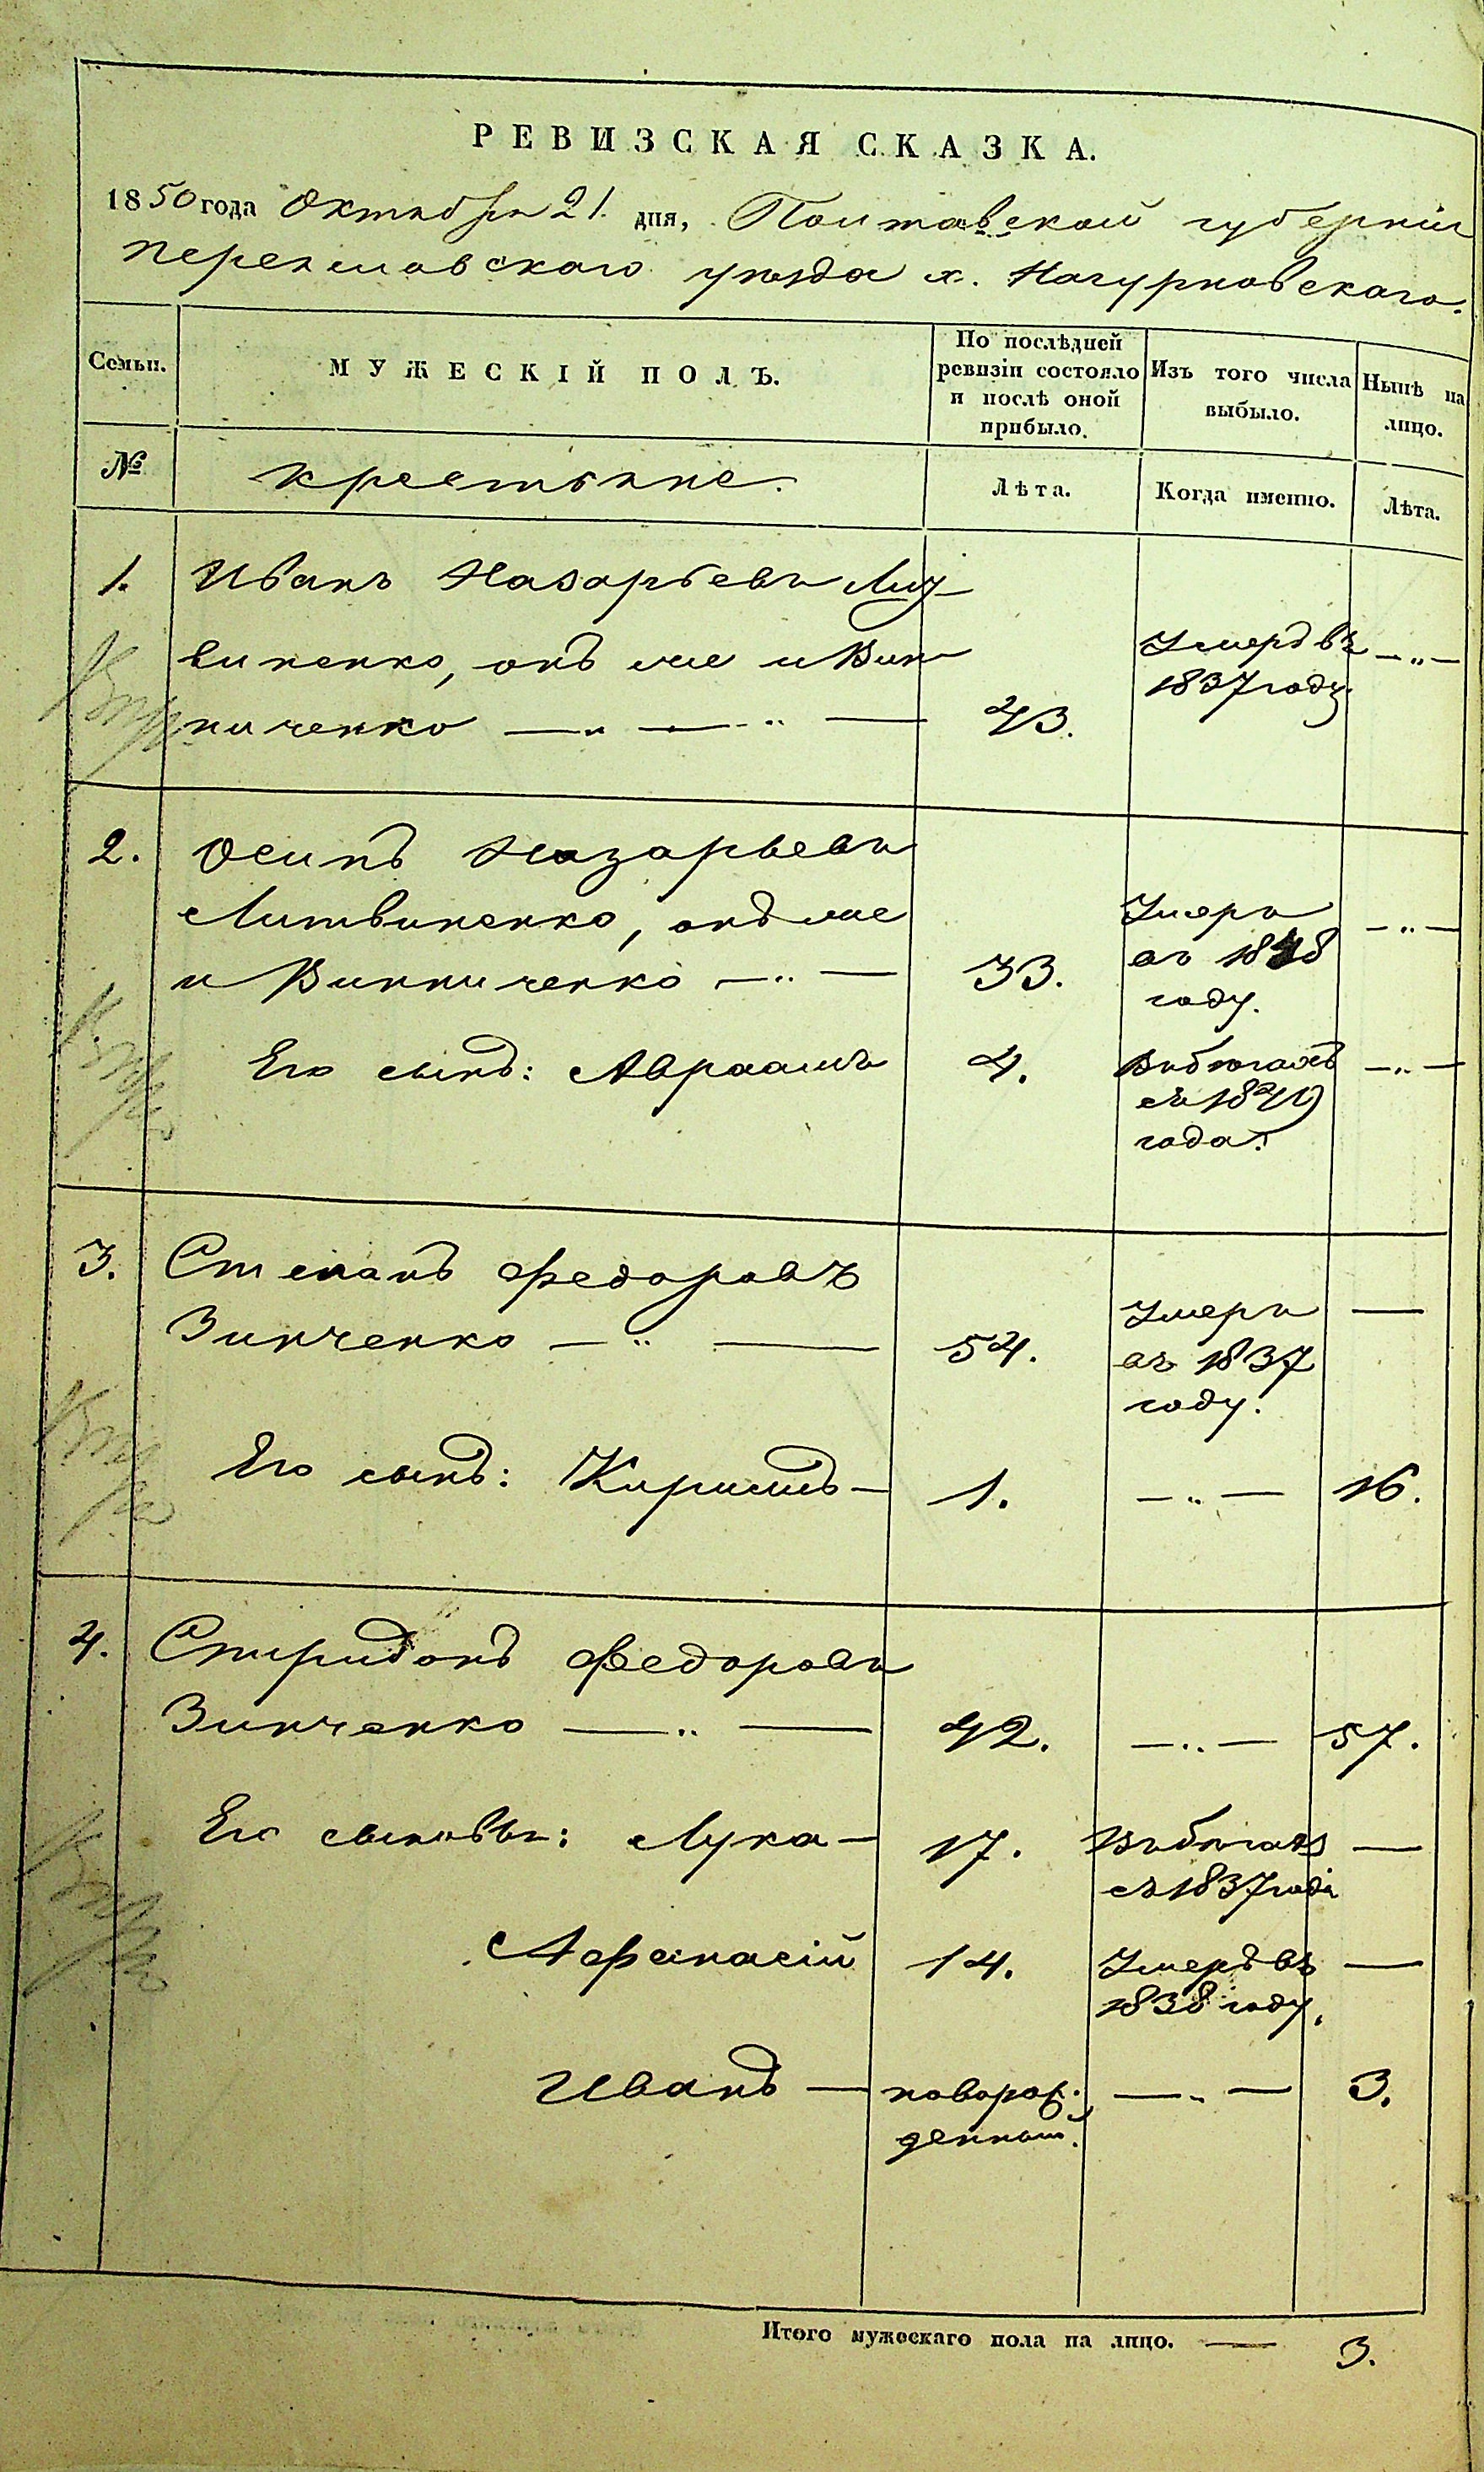 РЕВИЗСКАЯ СКАЗКА.
1850 года Октября 21. дня, Полтавской губерніи
Переяславскаго уѣзда х. Мачурковскаго.
Семьи. МУЖЕСКІЙ ПОЛЪ. По послѣдней ревизіи состояло и послѣ оной прибыло. Изъ того числа выбыло. Нынѣ на лицо.
№ крестьяне. Лѣта. Когда именно. Лѣта.
1. Иванъ Назарьевъ Ли
виненко, онъ же и Вин Умеръ въ —„—
ниченко —„— —„— 43. 1837 году.
2. Осипъ Назарьевъ
Литвиненко, онъ же Умеръ —„—
и Винниченко —„— 33. въ 1848
году.
Его сынъ: Авраамъ 4. въ бѣгахъ —„—
съ 1849
года.
3. Степанъ Федоровъ
Зинченко —„— 54. Умеръ —
въ 1837
году.
Его сынъ: Кирилъ — 1. —„— 16.
4. Спиридонъ Федоровъ
Зинченко —„— 42. —„— 57.
Его сыновья: Лука — 17. въ бѣгахъ —
съ 1837 года
Афанасій 14. Умеръ въ —
1838 году.
Иванъ — новорож- —„— 3.
денный.
Итого мужескаго пола на лицо. — 3.